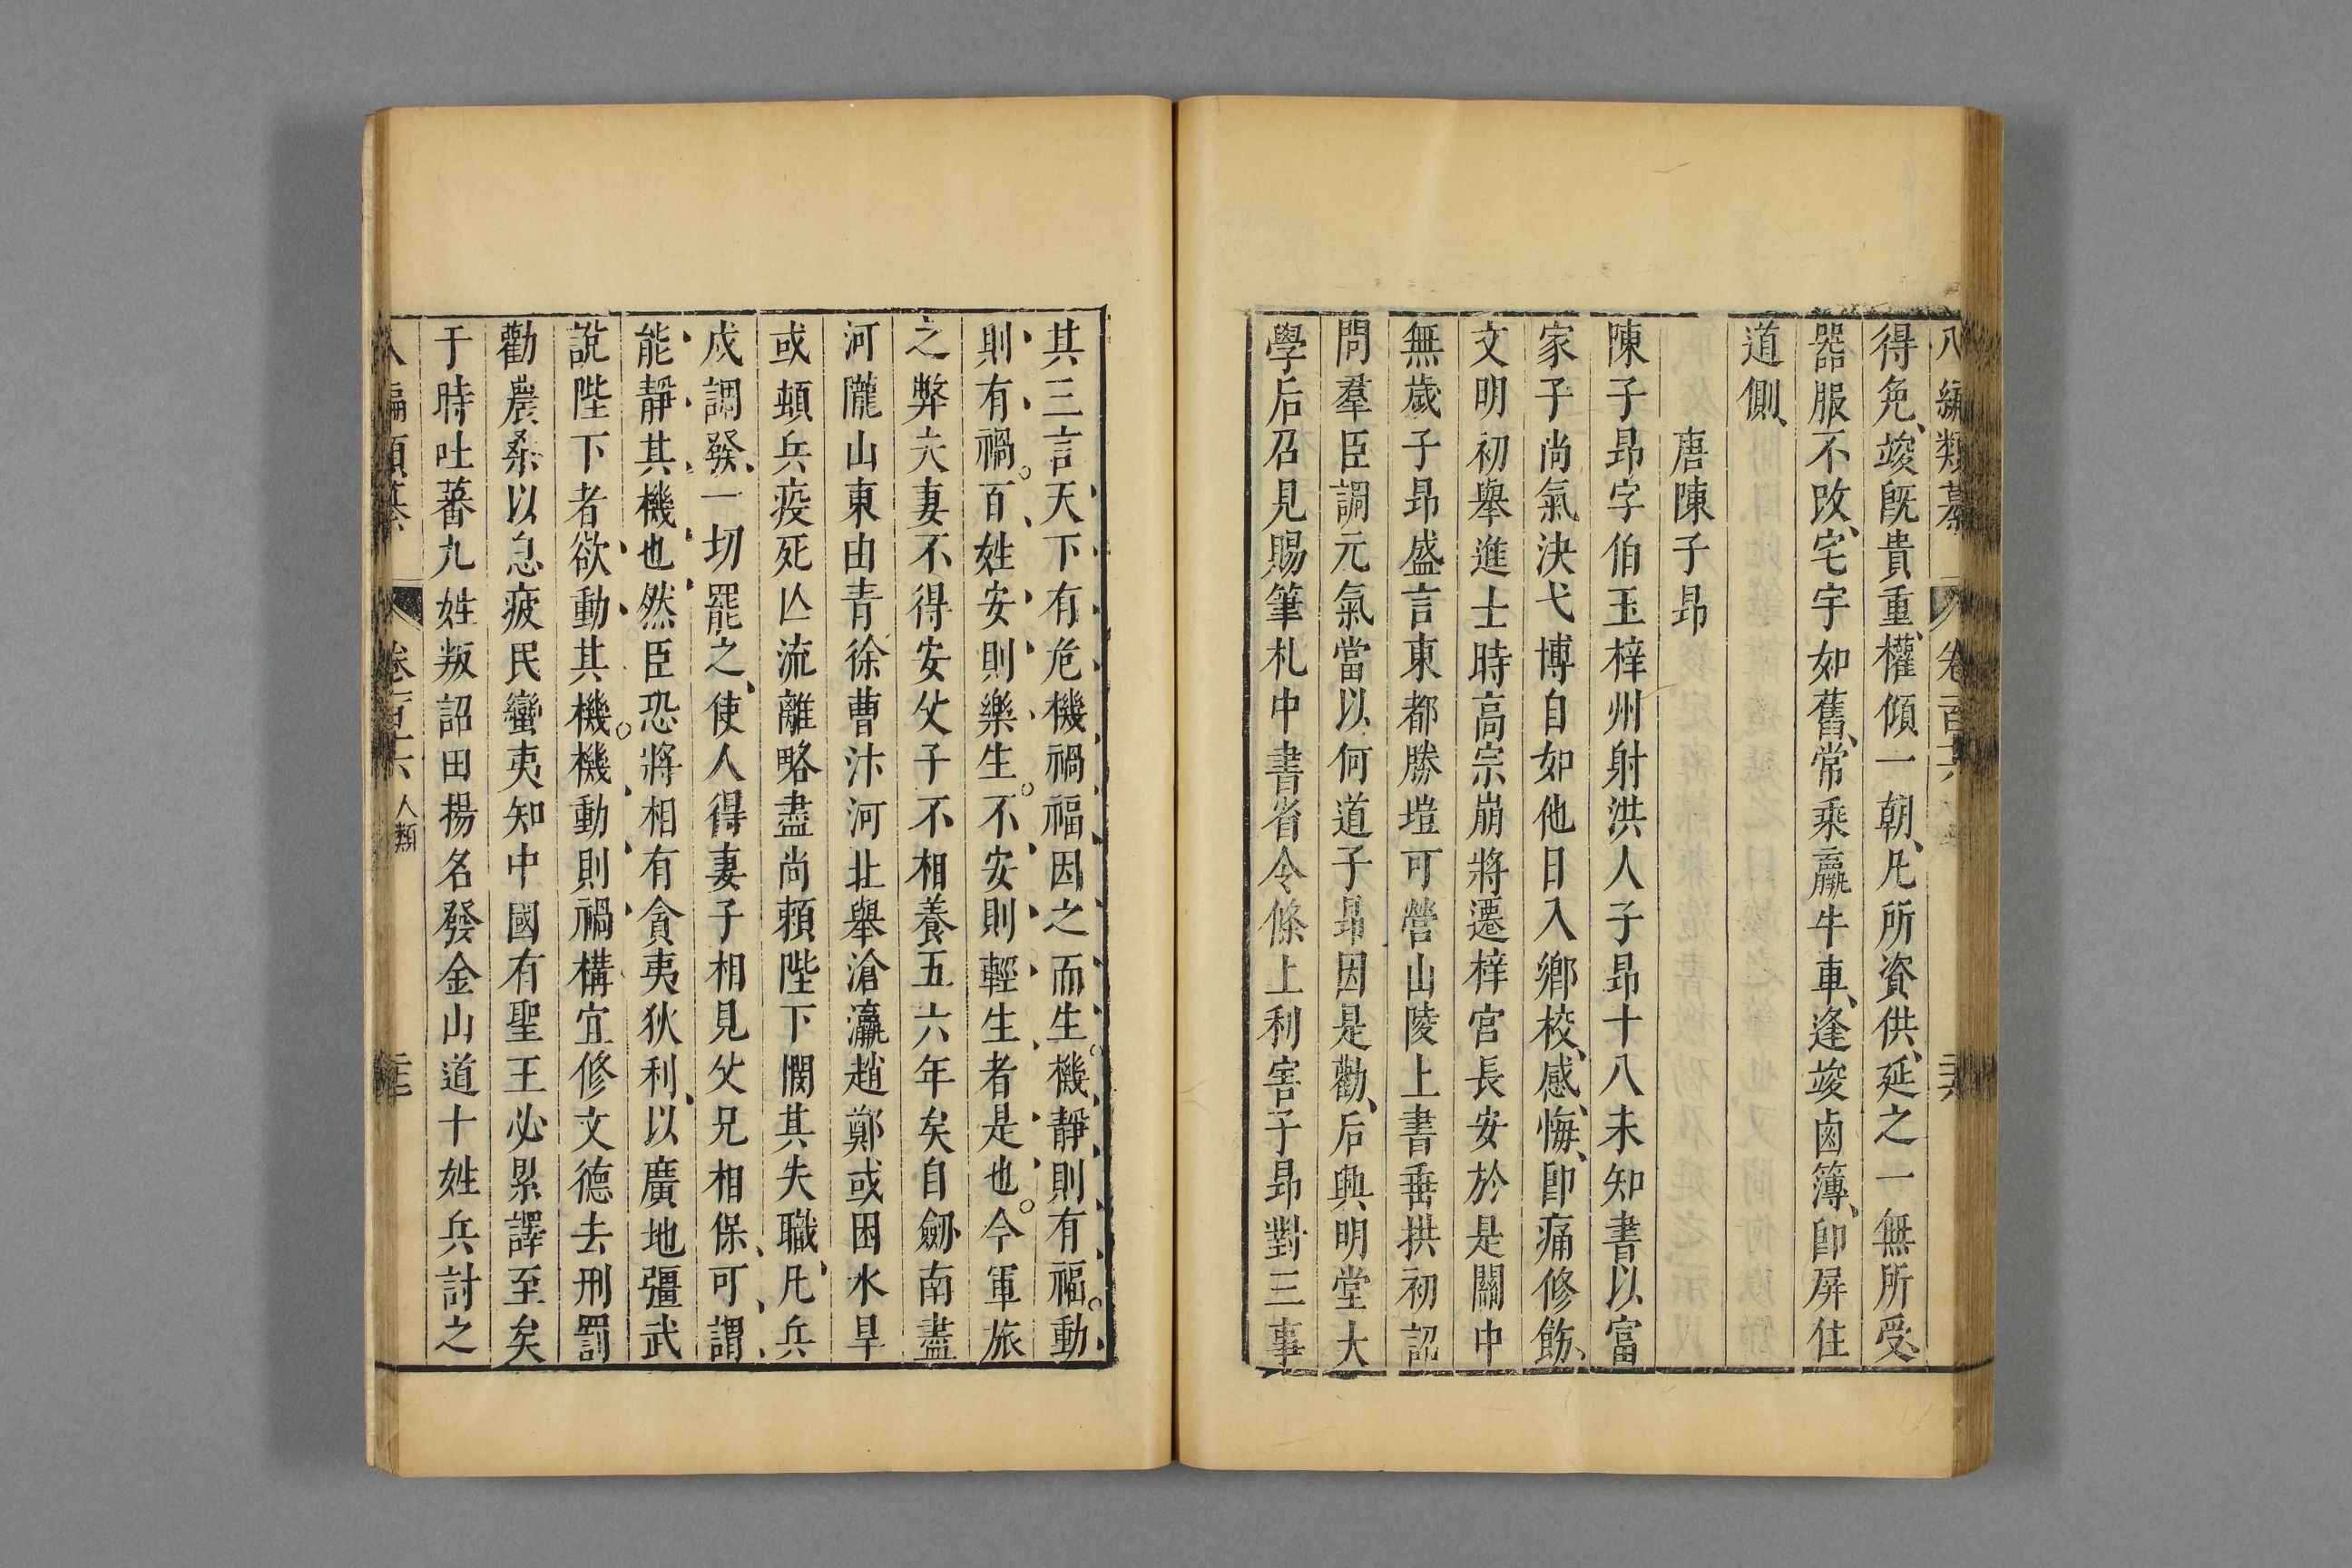 八編類纂 卷百六 二十六
得免、竣既貴重、權傾一朝、凡所資供、延之一無所受、
器服不改、宅宇如舊、常乘羸牛車、逢竣鹵簿、卽屏住
道側、
唐陳子昂
陳子昂字伯玉梓州射洪人子昂十八未知書以富
家子尚氣決弋博自如他日入鄉校、感悔、卽痛修飭、
文明初舉進士時高宗崩將遷梓宮長安於是關中
無歲子昂盛言東都勝塏可營山陵上書垂拱初詔
問羣臣調元氣當以何道子昂因是勸、后興明堂大
學后召見賜筆札中書省令條上利害子昂對三事
其三言天下有危機禍福因之而生。機靜則有福。動
則有禍。百姓安則樂生。不安則輕生者是也。今軍旅
之弊夫妻不得安父子不相養五六年矣自劒南盡
河隴山東由青徐曹汴河北舉滄瀛趙鄭或困水旱
或頓兵疫死亾流離略盡尚賴陛下憫其失職、凡兵
戍調發、一切罷之、使人得妻子相見父兄相保、可謂
能靜其機也然臣恐將相有貪夷狄利、以廣地彊武
說陛下者欲動其機。機動則禍構宜修文德去刑罰
勸農桑以息疲民蠻夷知中國有聖王必累譯至矣
于時吐蕃九姓叛詔田揚名發金山道十姓兵討之
八編類纂 卷百六 人類 二十七